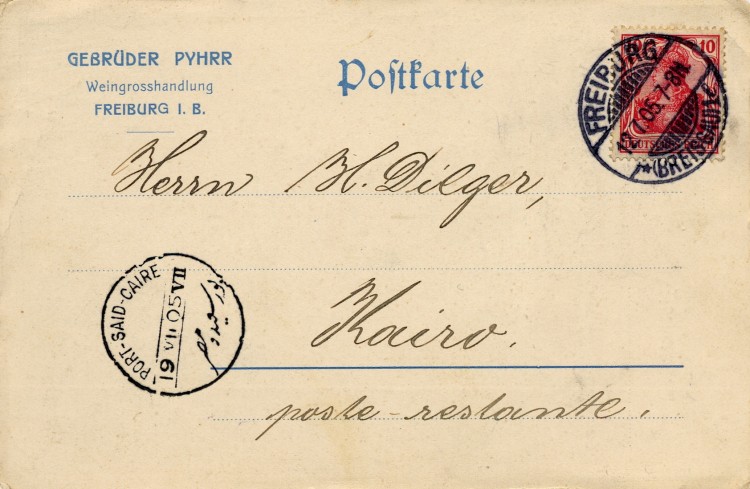 GEBRÜDER PYHRR
Weingrosshandlung
FREIBURG I. B.
Postkarte
10
FREIBURG
.7.05.7-8N.
*(BREISGAU)
Herrn H. Dilger,
PORT-SAID-CAIRE
19 VII 05 VII
Kairo.
poste-restante.